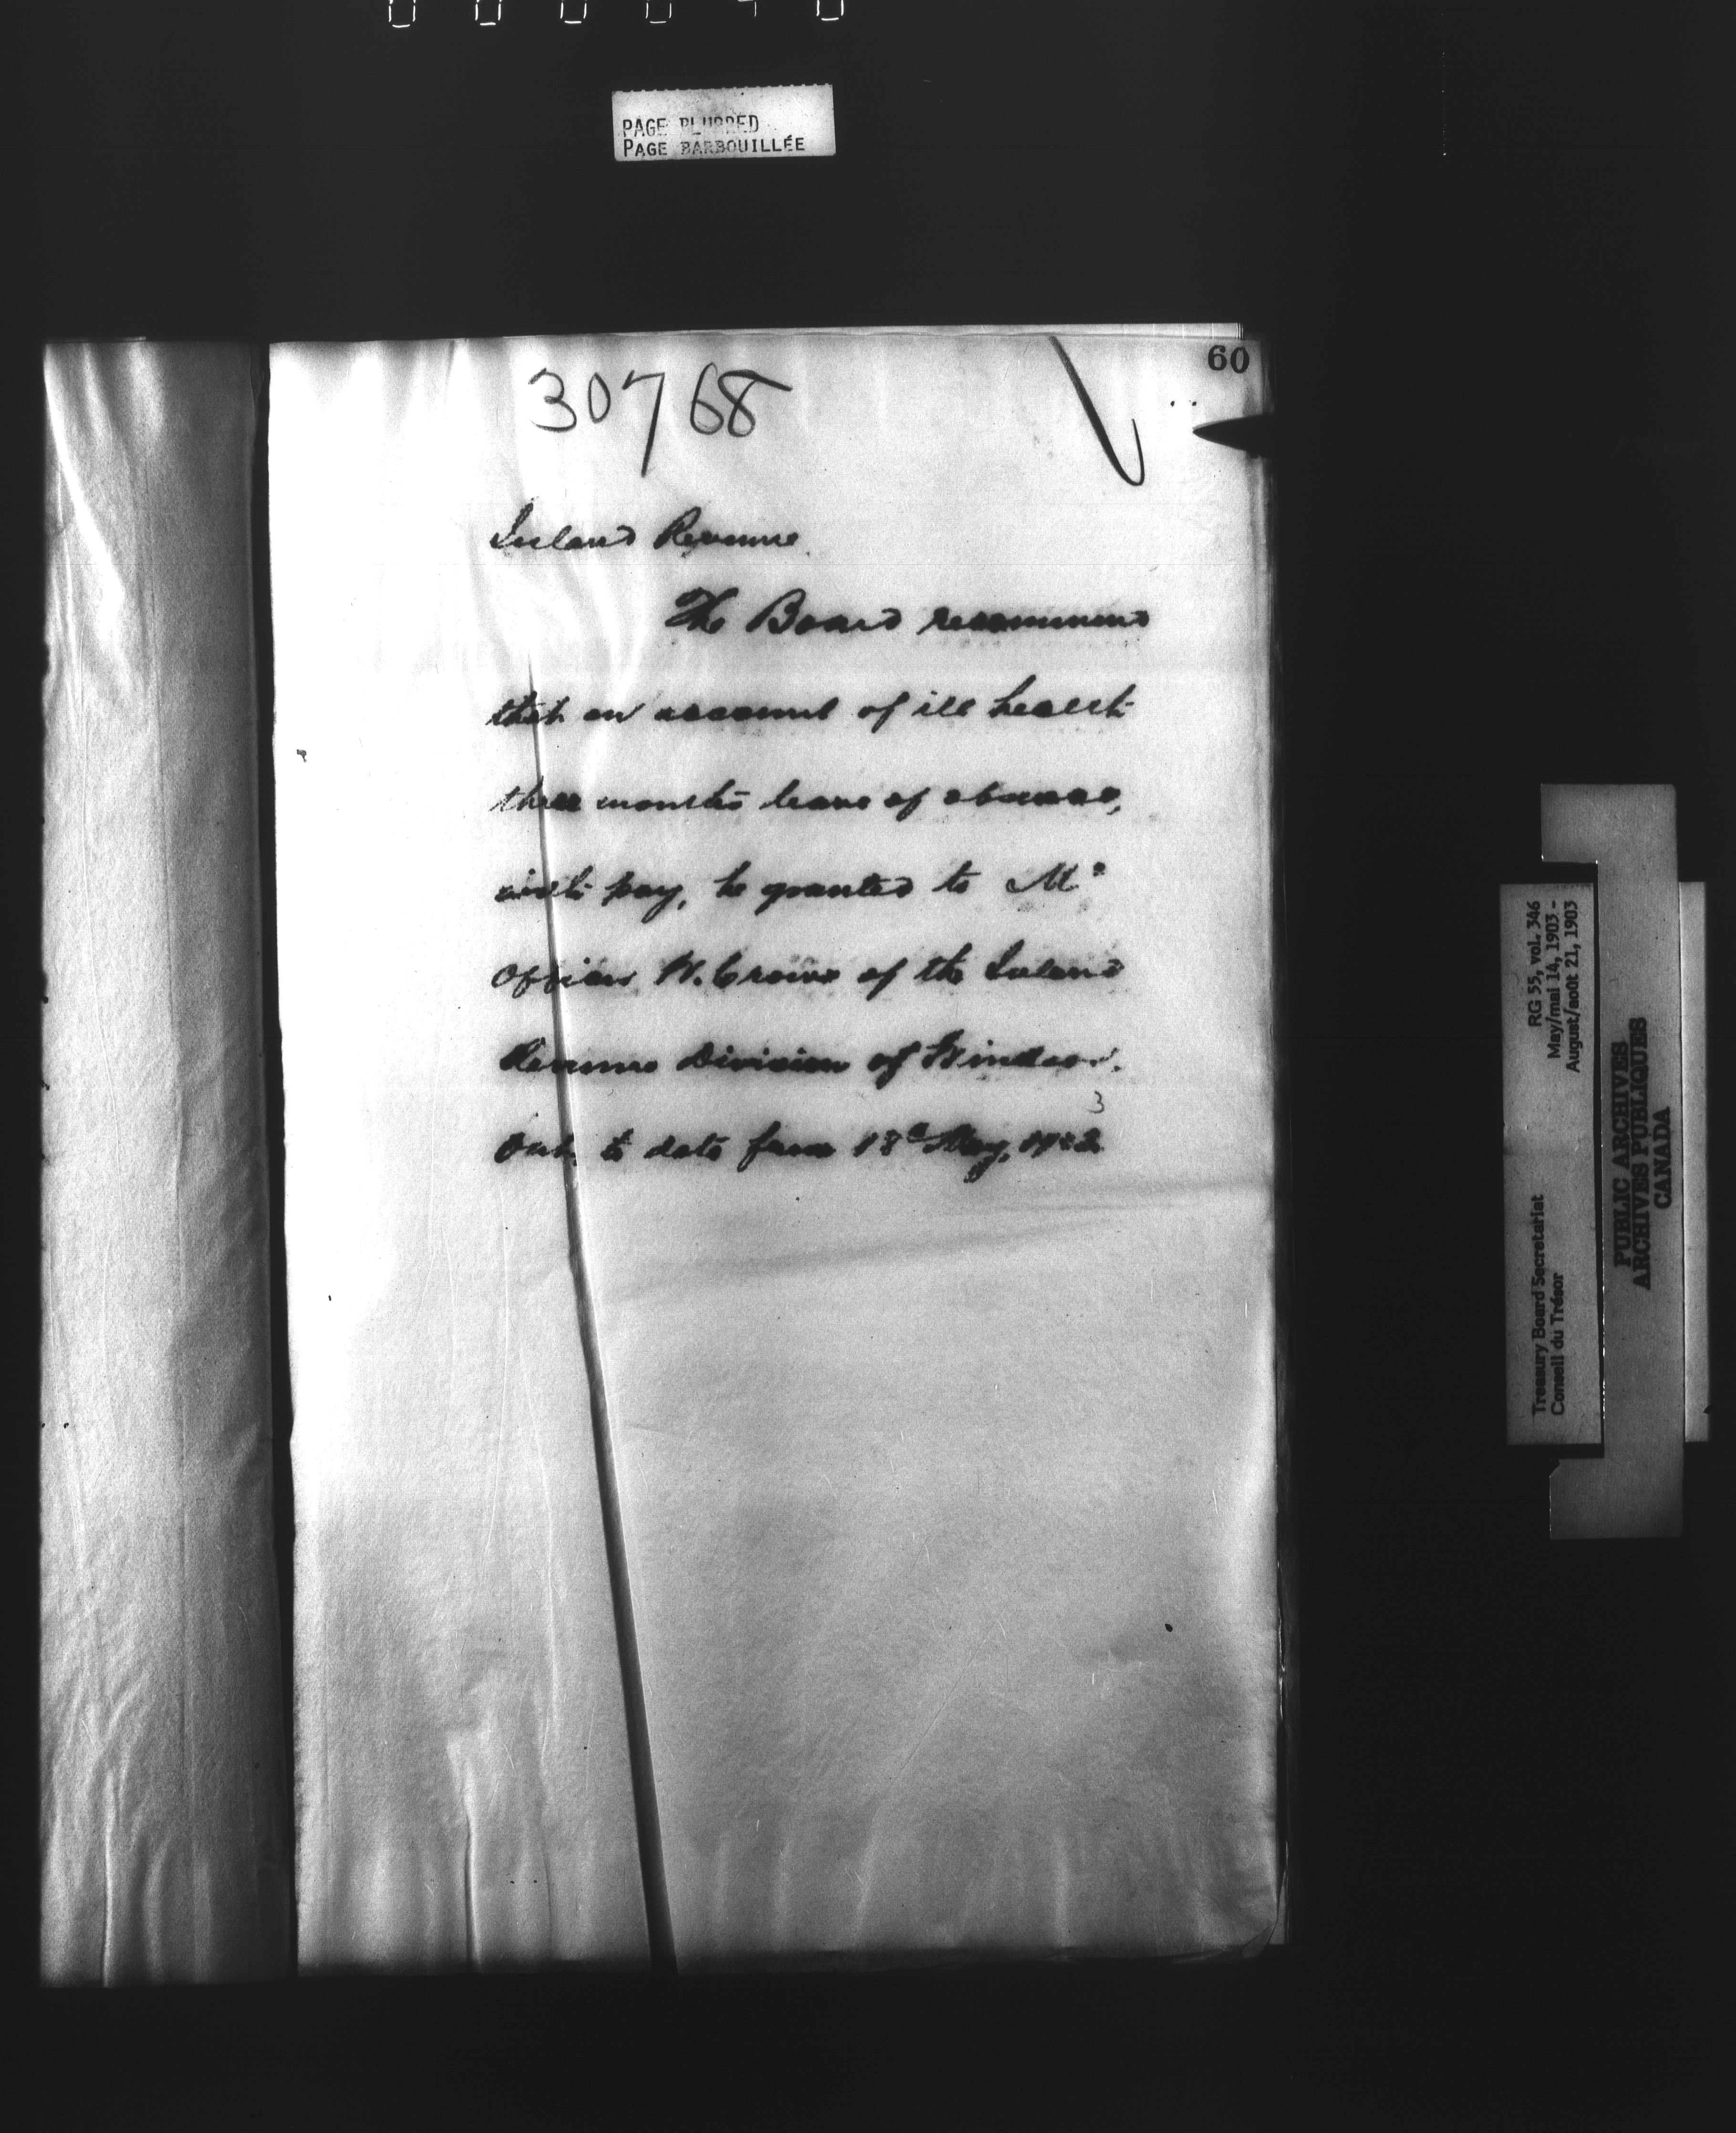 PAGE BLURRED
PAGE BARBOUILLÉE
60
30768
Inland Revenue.
The Board recommend
that on account of ill health
three months leave of absence,
with pay, be granted to Mr
W. Crowe of the Inland
Revenue Division of Windsor.
Ont. to date from 18th May, 1903
3
RG 55, vol. 346
May/mai 14, 1903 -
August/août 21, 1903
Treasury Board Secretariat
Conseil du Trésor
PUBLIC ARCHIVES
ARCHIVES PUBLIQUES
CANADA